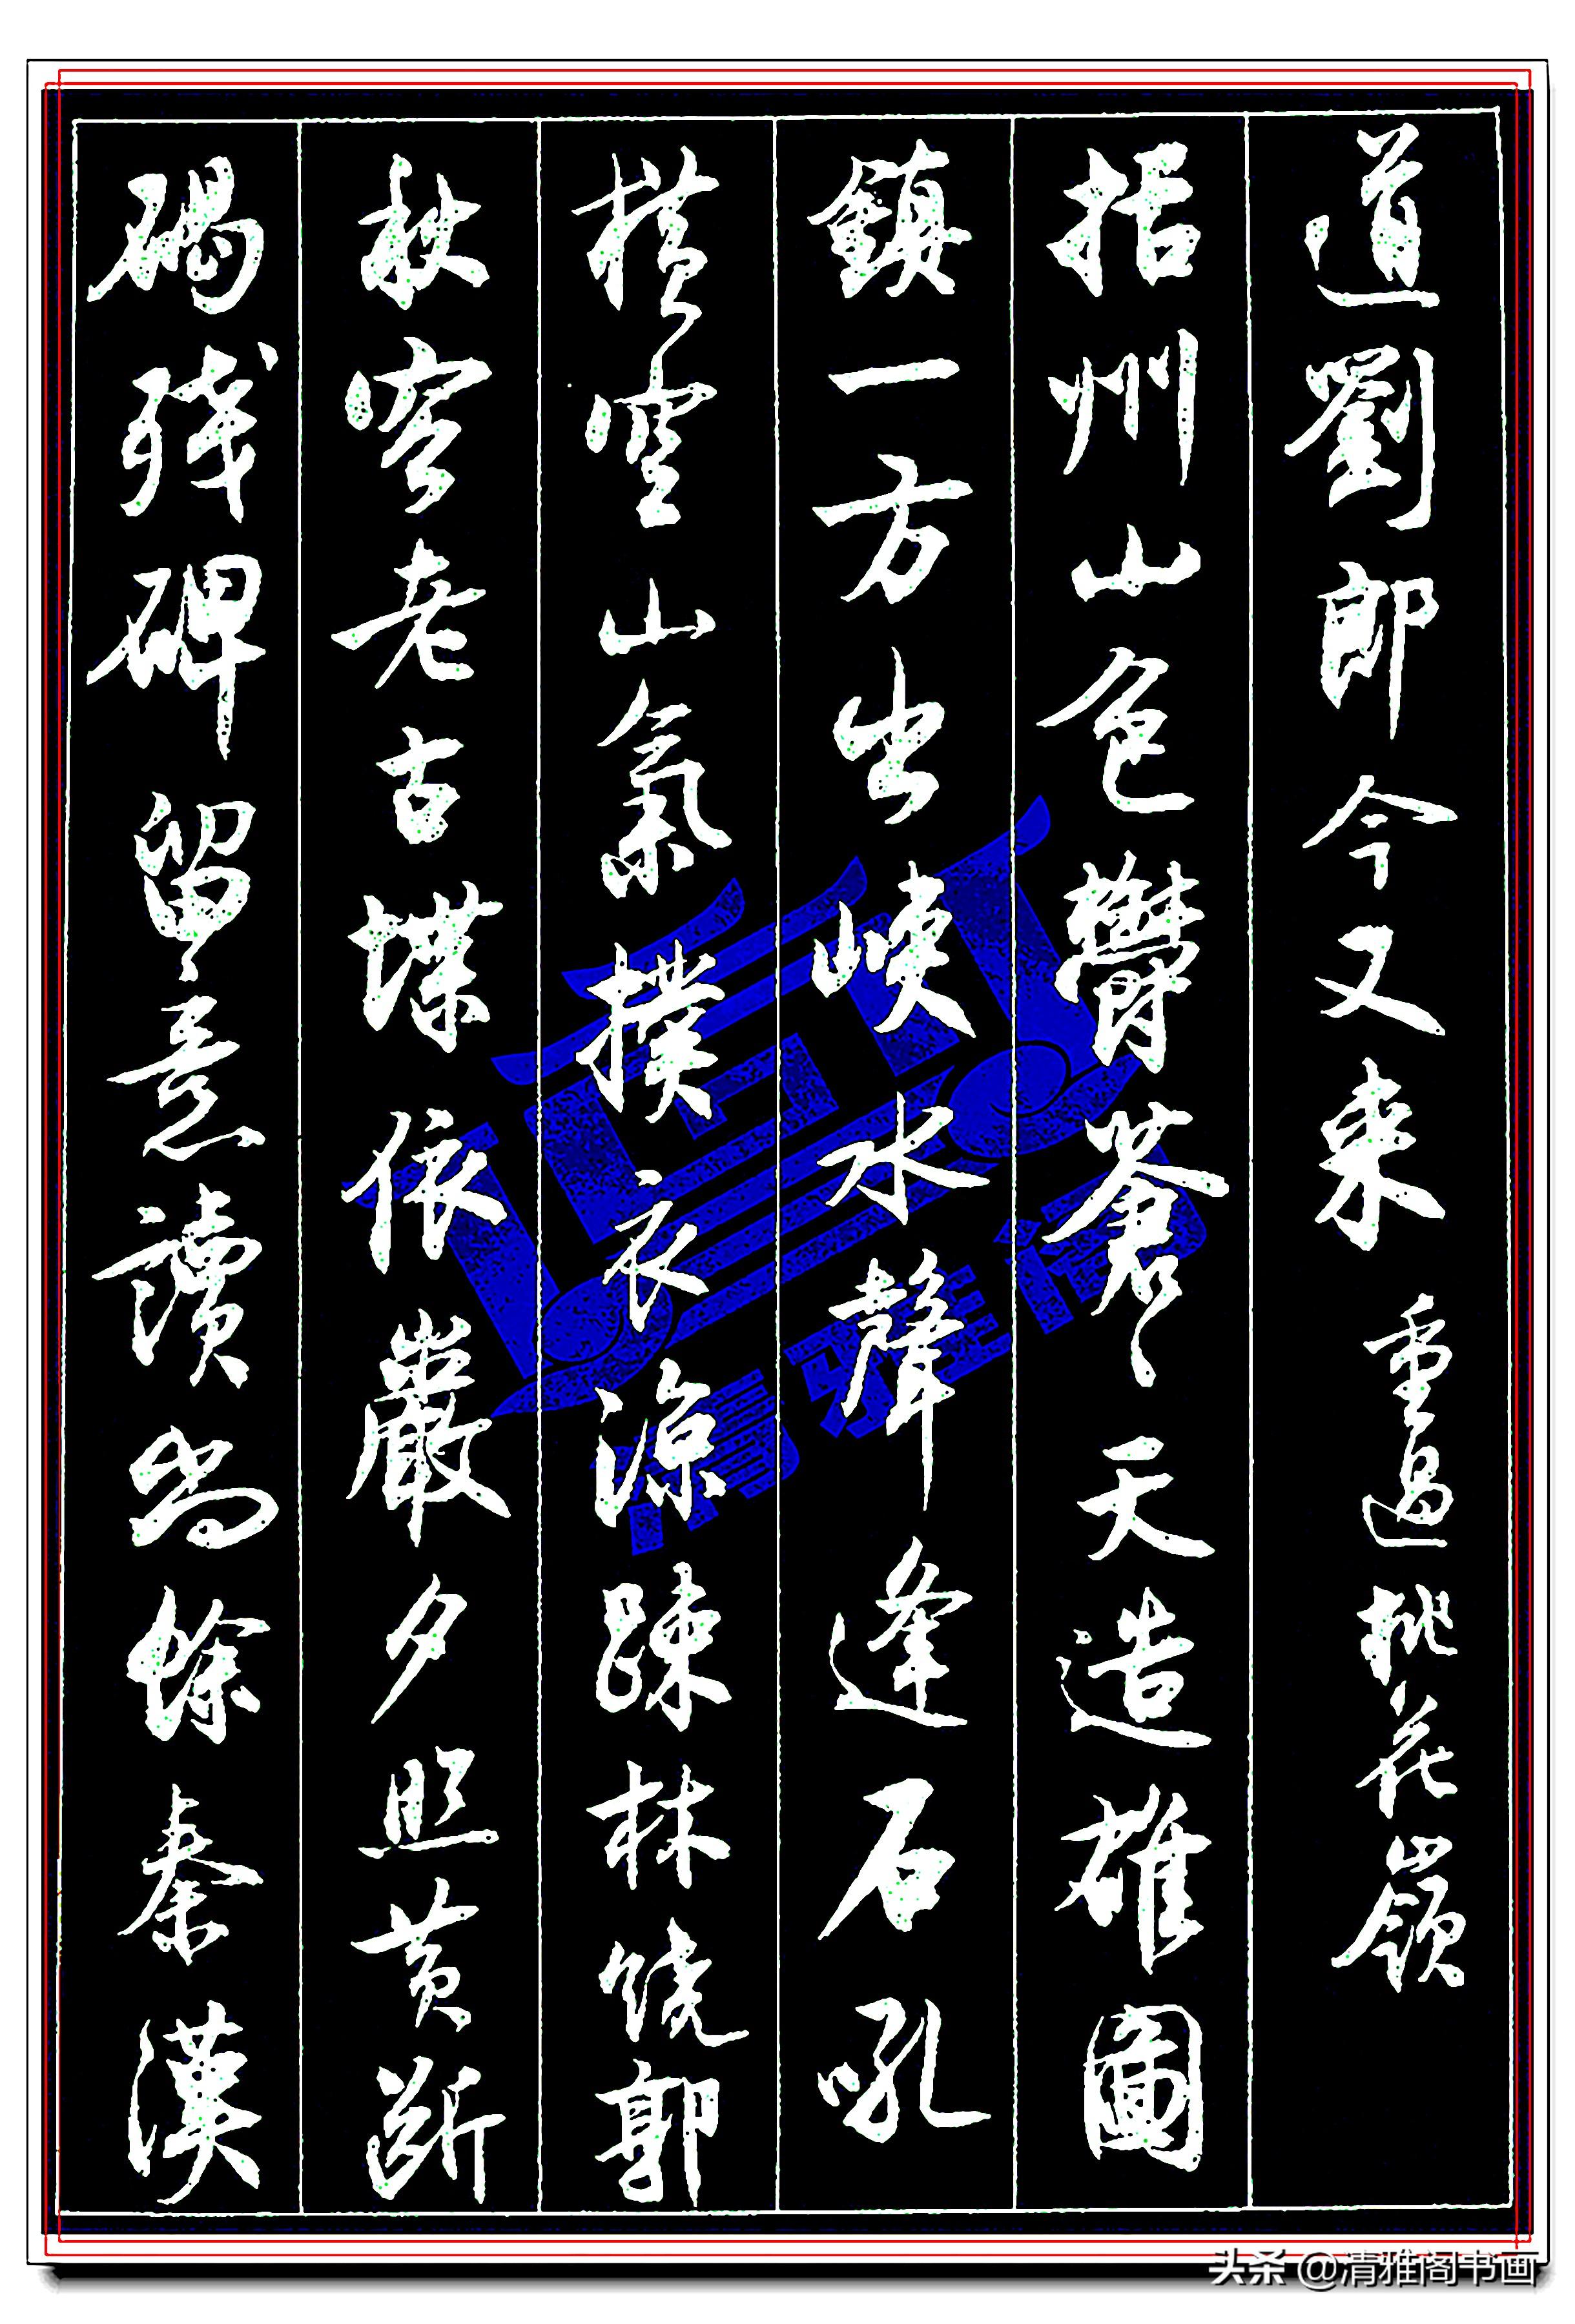 道劉郎今又来 重過桃花嶺
括州山色鬱蒼〻天造雄圖
鎮一方出峽水聲逢石吼
横空山氣撲衣涼疎林繞郭
秋容老古堞依巖夕照黄断
碣残碑留意讀尚餘秦漢
头条 @清雅阁书画